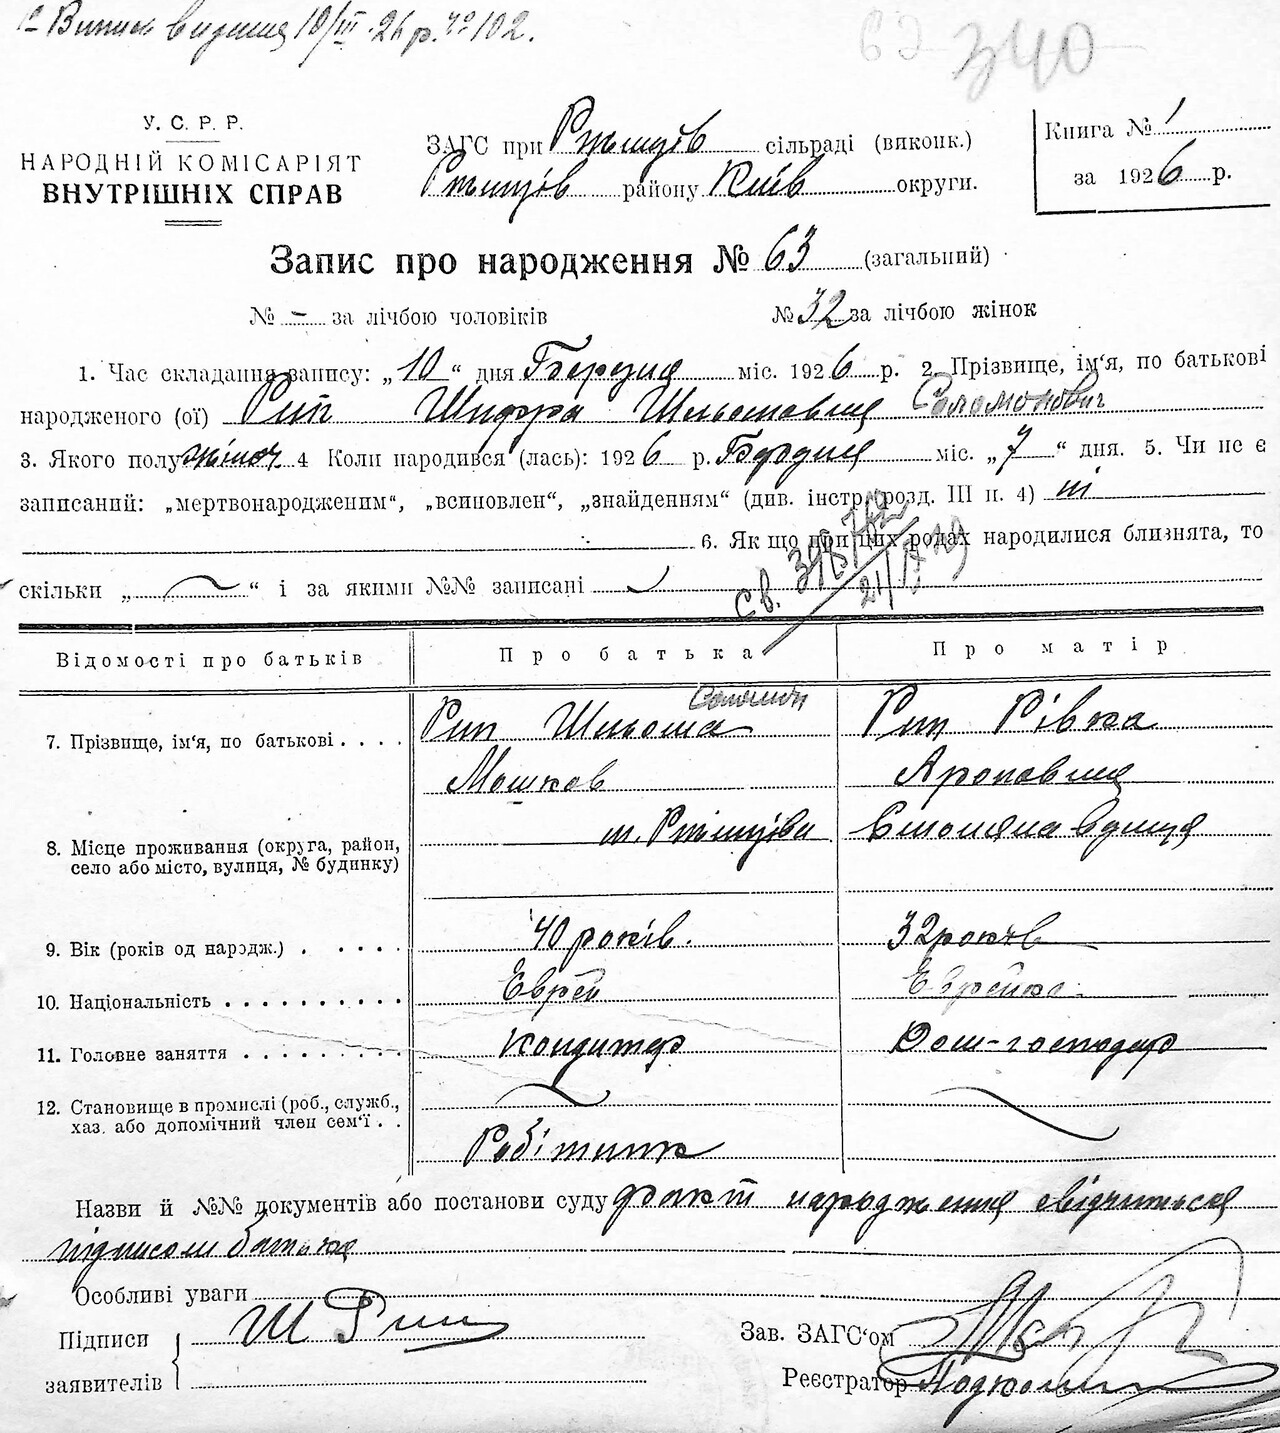 Випись видана 10/III-26 р. № 102.
340
У. С. Р. Р.
НАРОДНІЙ КОМІСАРІЯТ
ВНУТРІШНІХ СПРАВ
ЗАГС при Ржищів сільраді (виконк.)
Ржищів району Київ округи.
Книга № 1
за 1926 р.
Запис про народження № 63 (загальний)
№ - за лічбою чоловіків № 32 за лічбою жінок
1. Час складання запису: „10“ дня Березня міс. 1926 р. 2. Прізвище, ім‘я, по батькові
народженого (ої) Рип Шифра Шльомовна Соломонович
3. Якого полу жіноч 4 Коли народився (лась): 1926 р. Березня міс. „7“ дня. 5. Чи не є
записаний: „мертвонародженим“, „всиновлен“, „знайденням“ (див. інстр. розд. III п. 4) ні
6. Як що при цих родах народилися близнята, то
скільки „ “ і за якими №№ записані
Св.
Відомості про батьків Про батька Про матір
7. Прізвище, ім‘я, по батькові . . . . Рип Шльома Рип Рівка
Мошков Ароновна
8. Місце проживання (округа, район, м. Ржищів
село або місто, вулиця, № будинку)
9. Вік (років од народж.) . . . . . 40 років. 32 років
10. Національність . . . . . . . . . . Еврей Еврейка
11. Головне заняття . . . . . . . . . Кондитер Дом-господар
12. Становище в промислі (роб., служб.,
хаз. або допомічний член сем‘ї . .
Робітник
Назви й №№ документів або постанови суду факт народження свідчиться
підписом батька
Особливі уваги
Підписи Ш Рип
заявителів
Зав. ЗАГС‘ом
Реєстратор